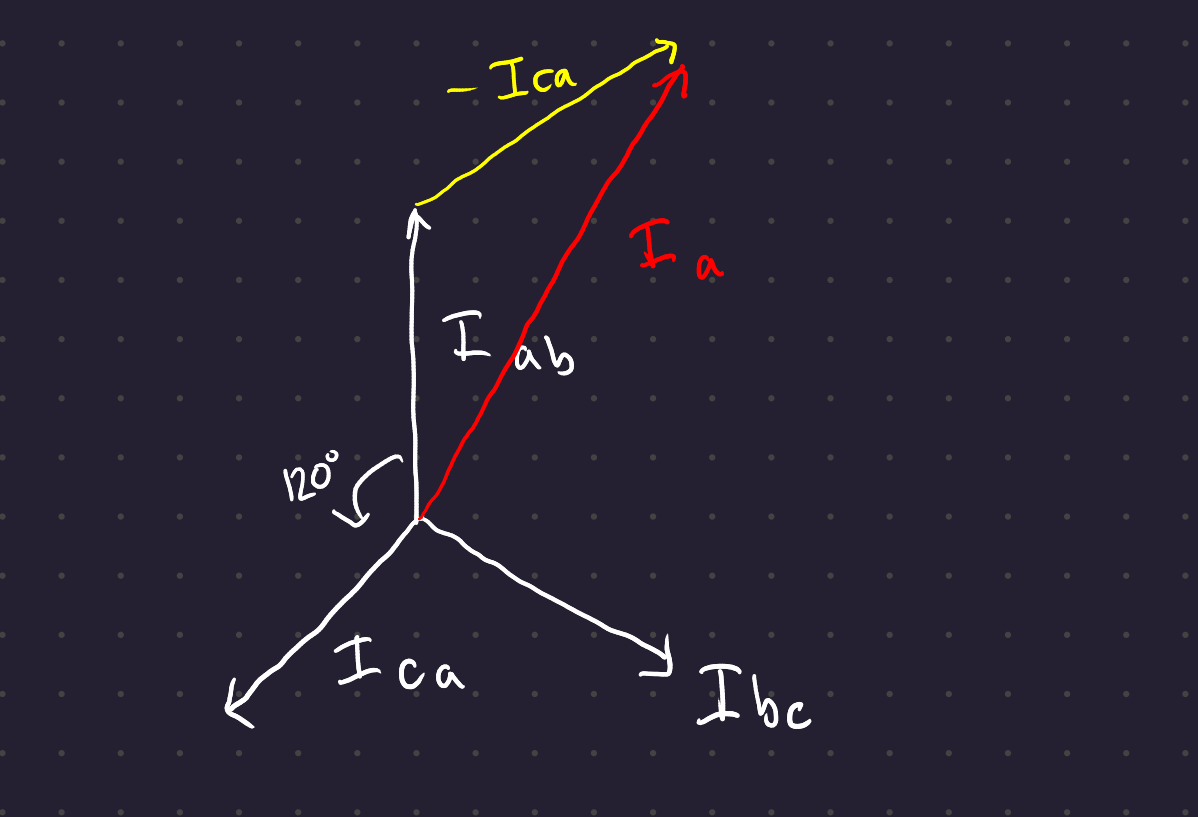 - Ica
I a
I ab
120°
I ca
Ibc